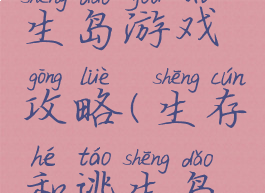 shēng dǎo yóu xì
生岛游戏
gōng lüè shēng cún
攻略(生存
hé táo shēng dǎo
和逃生岛